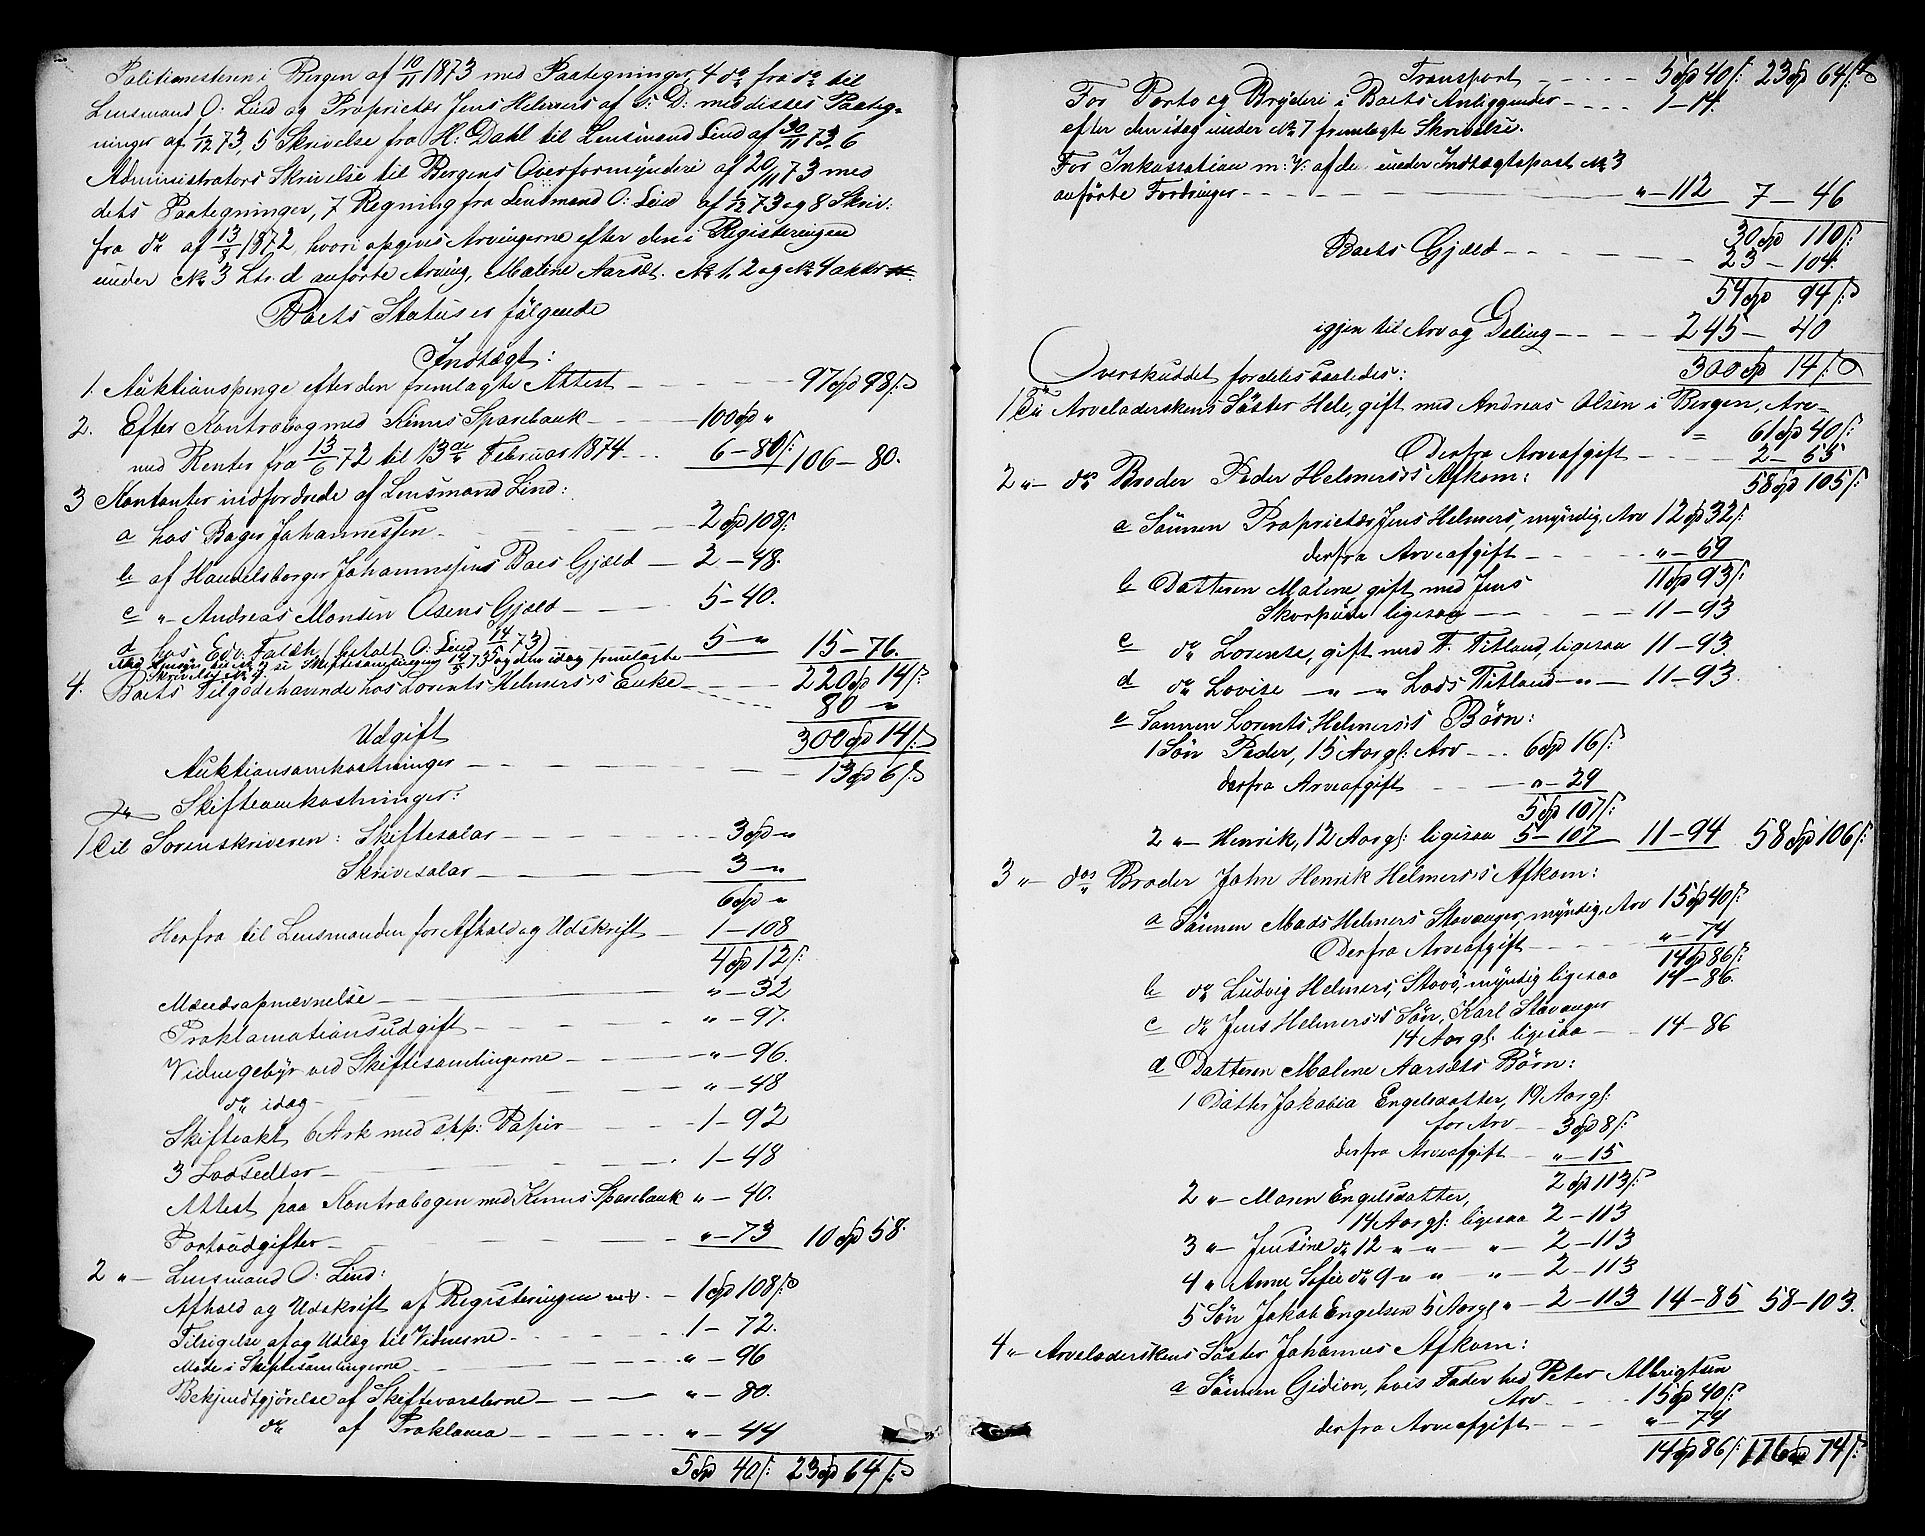 Politimesteren i Bergen af 10/11 1873 med Paategninger, 4 do fra do til
Lensmand O: Lind og Proprietær Jens Helmers af S: D: med disses Paateg-
ninger af 1/12 73, 5 Skrivelse fra H: Dahl til Lensmand Lind af 30/11 73, 6
Administrators Skrivelse til Bergens Overformynderi af 20/11 73 med
dets Paategninger, 7 Regning fra Lensmand O: Lind af 1/12 73 og 8 Skriv:
fra do af 13/8 1872, hvori opgives Arvingerne efter den i Registeringen
under No 3 Ltr. d anförte Arving, Malene Aarsæt. No 1, 2 og No 4
Boets Status er fölgende
Indtægt:
1. Auktionspenge efter den fremlagte Attest — 97 Spd 98 ſ:
2. Efter Kontrabog med Kinns Sparebank — 100 Spd "
med Renter fra 13/6 72 til 13de Februar 1874 — 6 – 80 ſ: 106 – 80.
3 Kontanter indfordrede af Lensmand Lind:
a hos Bager Johannessen — 2 Spd 108 ſ:
b af Handelsborger Johannessens Boes Gjæld — 2 – 48.
c " Andreas Monsen Osens Gjæld — 5 – 40.
d hos Edv. Falch (betalt O: Lind 14/5 73) — 5 – " 15 – 76.
220 Spd 14 ſ:
4. Boets Tilgodehavende hos Lorents Helmers's Enke — 80 – "
300 Spd 14 ſ:
Udgift
Auktionsomkostninger — 13 Spd 6 ſ:
Skifteomkostninger:
1 Til Sorenskriveren: Skiftesalær — 3 Spd "
Skrivesalær — 3 – "
6 Spd "
Herfra til Lensmanden for Afhold og Udskrift — 1 – 108
4 Spd 12 ſ:
Mændsopnævnelse — " – 32
Proklamationsudgift — " – 97.
Vidnegebyr ved Skiftesamlingerne — " – 96.
do idag — " – 48
Skifteakt 6 Ark med stp: Papir — 1 – 92
3 Lodsedler — 1 – 48
Attest paa Kontrabogen med Kinns Sparebank " – 40.
Portoudgifter — " – 73 10 Spd 58.
2 " – Lensmand O: Lind:
Afhold og Udskrift af Registeringen — 1 Spd 108 ſ:
Tilsigelse af og Udlæg til Vidnerne — 1 – 72.
Møde i Skiftesamlingerne — " – 96
Bekjendtgjörelse af Skiftevarslerne — " – 80.
do af Proklama — " – 44
5 Spd 40 ſ: 23 Spd 64 ſ:
Transport — 5 Spd 40 ſ: 23 Spd 64 ſ:
For Porto og Bryderi i Boets Anliggender — 1 – 14.
efter den idag under No 7 fremlagte Skrivelse.
For Inkassation m: V: af de under Indtægtspost No 3
anförte Fordringer — " – 112 7 – 46
30 Spd 110 ſ:
Boets Gjæld — 23 – 104.
54 Spd 94 ſ:
igjen til Arv og Deling — 245 – 40
300 Spd 14 ſ:
Overskuddet fordeles saaledes:
1 Til Arveladerskens Söster Hele, gift med Andreas Olsen i Bergen, Arv –
= 61 Spd 40 ſ:
Derfra Arveafgift — 2 – 55
58 Spd 105 ſ:
2 " – do Broder Peder Helmers's Afkom:
a Sönnen Proprietær Jens Helmers, myndig, Arv 12 Spd 32 ſ:
derfra Arveafgift — " – 59
11 Spd 93 ſ:
b Datteren Malene gift med Jens
Skorpüde ligesaa — 11 – 93
c do Lorense, gift med F. Titland, ligesaa 11 – 93.
d do Lovise – " – " Lads Titland – " – 11 – 93.
e Sönnen Lorents Helmers's Börn:
1 Sön Peder, 15 Aar gl: Arv — 6 Spd 16 ſ:
derfra Arveafgift — " – 29
5 Spd 107 ſ:
2 " – Henrik, 12 Aar gl: ligesaa 5 – 107 11 – 94 58 Spd 106 ſ:
3 " – dos Broder John Henrik Helmers's Afkom:
a Sönnen Mads Helmers Stavanger, myndig, Arv 15 Spd 40 ſ:
Derfra Arveafgift — " – 74
14 Spd 86 ſ:
b do Ludvig Helmers, Stavö, myndig ligesaa 14 – 86.
c do Jens Helmers's Sön, Karl Stavanger
14 Aar gl: ligesaa — 14 – 86
d Datteren Malene Aarsæts Börn:
1 Datter Jakobia Engelsdatter, 19 Aar gl:
for Arv — 3 Spd 8 ſ:
derfra Arveafgift — " – 15
2 Spd 113 ſ:
2 " – Maren Engelsdatter,
14 Aar gl: ligesaa 2 – 113
3 " – Jensine do 12 " " – " – 2 – 113
4 " Anne Sofie do 9 – " " " – 2 – 113
5 Sön Jakob Engelsen 5 Aar gl " – 2 – 113 14 – 85 58 – 103.
4 " – Arveladerskens Söster Johannes Afkom:
a Sönnen Gidion, hvis Fader hed Peter Albrigtsen
Arv — 15 Spd 40 ſ:
derfra Arveafgift — " – 74
14 Spd 86 ſ: 176 Spd 74 ſ: